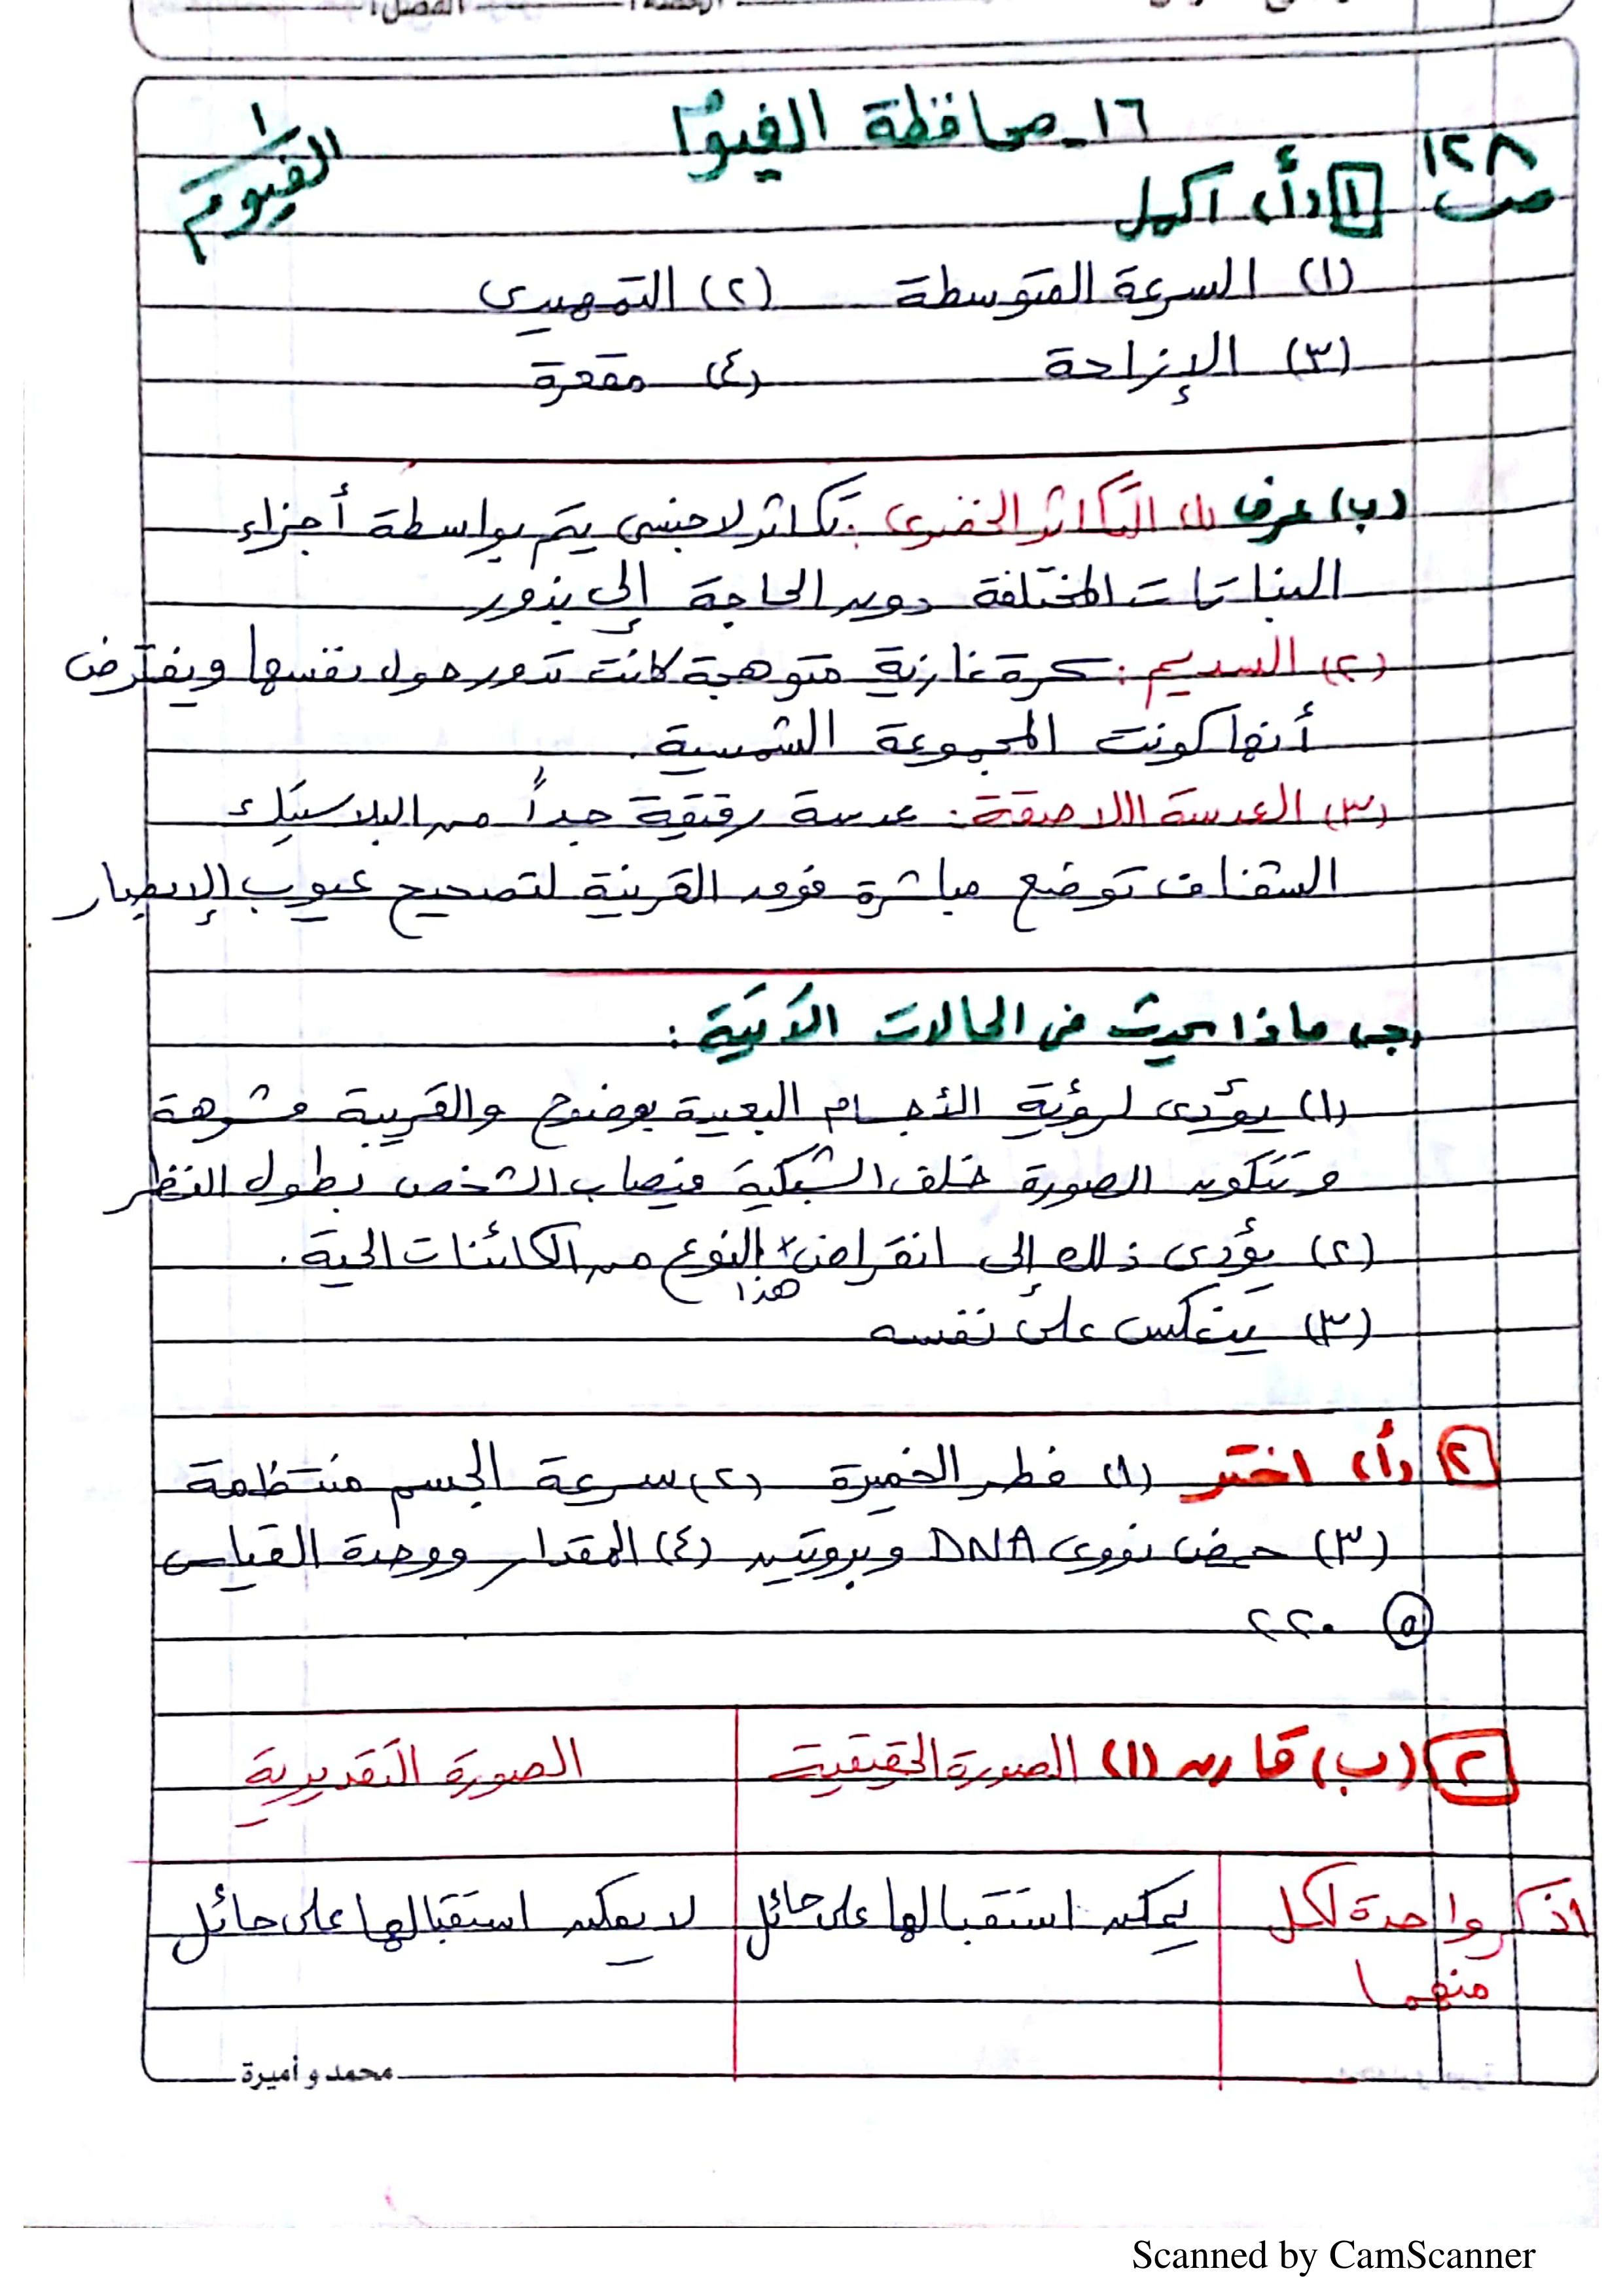 ١٦ـ محافظة الفيوم
الفيوم ١
ص ١٢٨
١ (أ) أكمل
(١) السرعة المتوسطة (٢) التمهيدى
(٣) الإزاحة (٤) مقعرة
(ب) عرف (١) التكاثر الخضرى : تكاثر لا جنسى يتم بواسطة أجزاء
النباتات المختلفة دون الحاجة إلى بذور
(٢) السديم : كرة غازية متوهجة كانت تدور حول نفسها ويفترض
أنها كونت المجموعة الشمسية .
(٣) العدسة اللاصقة : عدسة رقيقة جداً من البلاستيك
الشفاف توضع مباشرة فوق القرنية لتصحيح عيوب الإبصار
(جـ) ماذا يحدث فى الحالات الآتية :
(١) يؤدى لرؤية الأجسام البعيدة بوضوح والقريبة مشوهة
وتتكون الصورة خلف الشبكية فيصاب الشخص بطول النظر
(٢) يؤدى ذلك إلى انقراض هذا النوع من الكائنات الحية .
(٣) ينعكس على نفسه
٢ (أ) اختر (١) فطر الخميرة (٢) سرعة الجسم منتظمة
(٣) حمض نووى DNA وبروتين (٤) المقدار ووحدة القياس
٥ ٢٢٠
٢ (ب) قارن (١) الصورة الحقيقية الصورة التقديرية
اذكر واحدة لكل يمكن استقبالها على حائل لا يمكن استقبالها على حائل
منهما
محمد و أميرة
Scanned by CamScanner